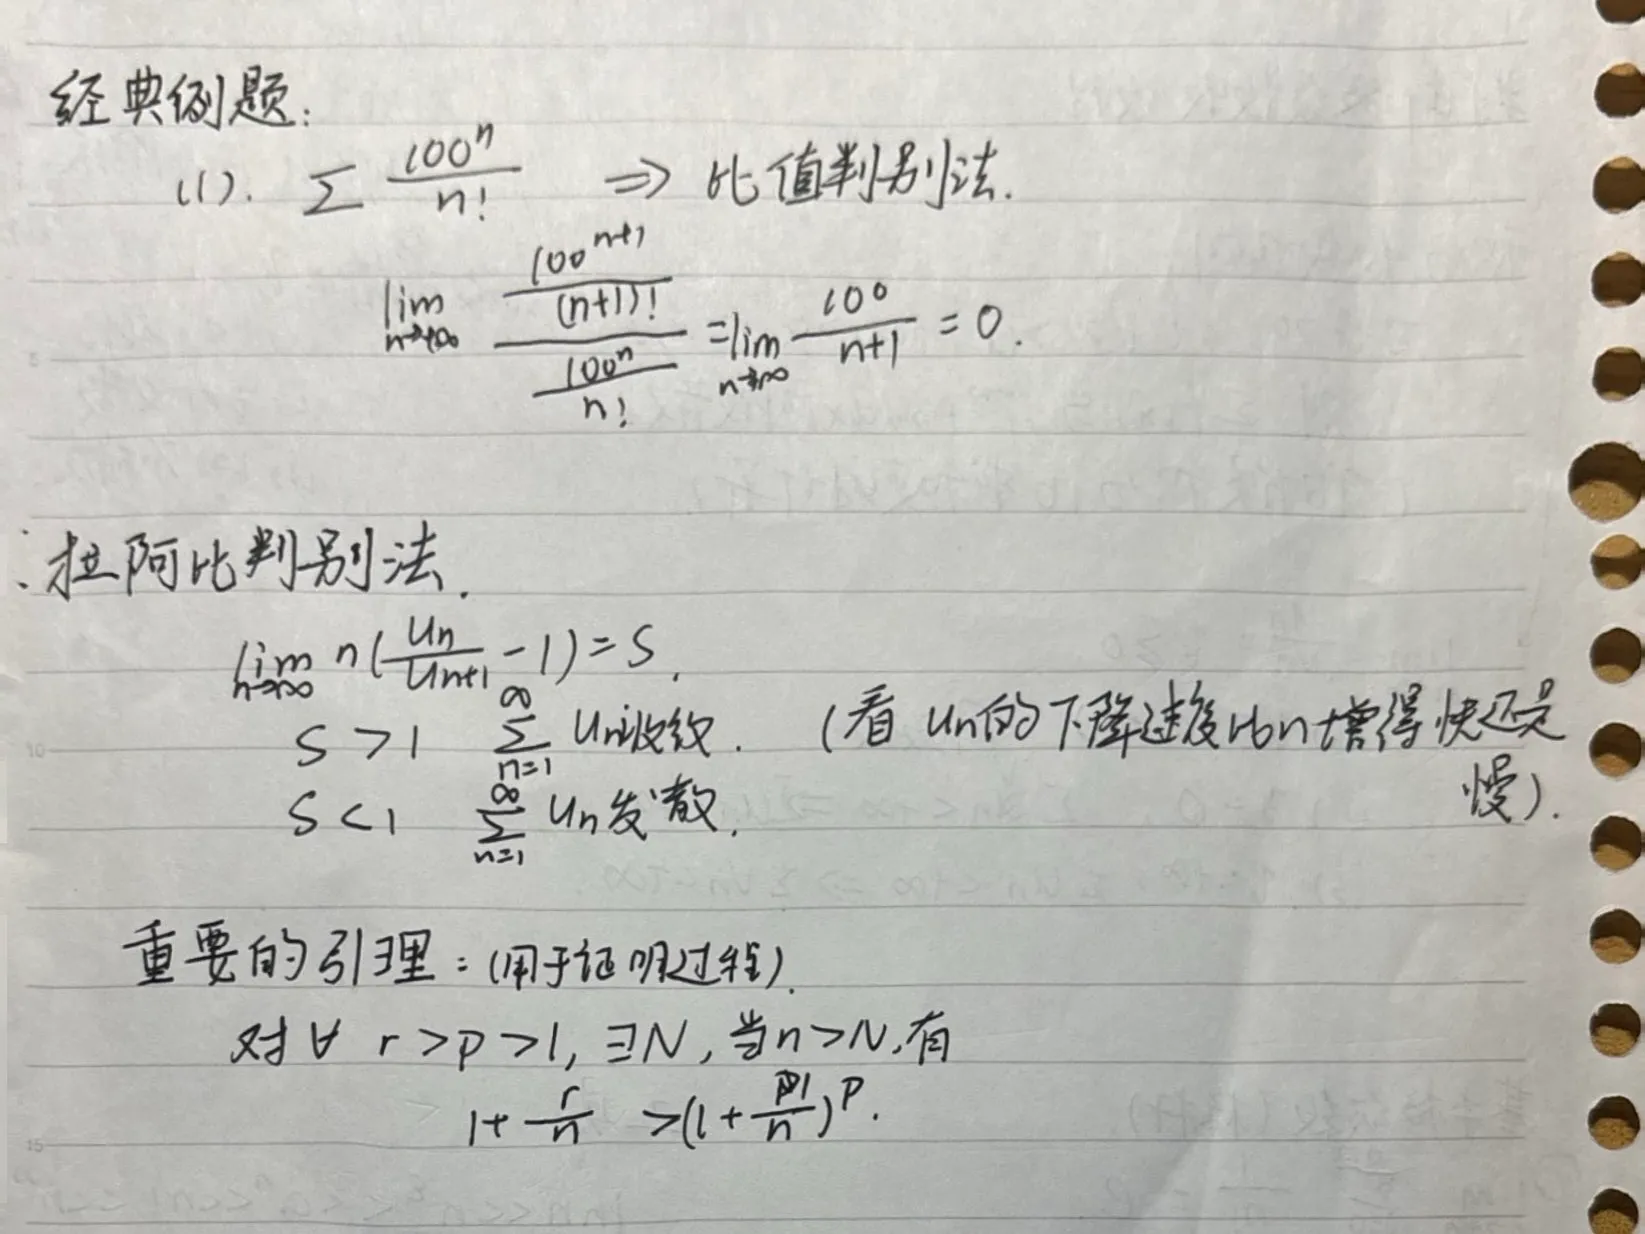 经典例题:
(1). ∑ 100^n / n! ⇒ 比值判别法.
lim_{n→+∞} (100^{n+1} / (n+1)!) / (100^n / n!) = lim_{n→+∞} 100 / (n+1) = 0.
: 拉阿比判别法.
lim_{n→+∞} n(Un / Un+1 - 1) = S.
S > 1 ∑_{n=1}^{∞} Un收敛. (看 Un的下降速度比n增得快还是
慢).
S < 1 ∑_{n=1}^{∞} Un发散.
重要的引理: (用于证明过程).
对∀ r > p > 1, ∃N, 当n > N, 有
1 + r/n > (1 + 1/n)^p.